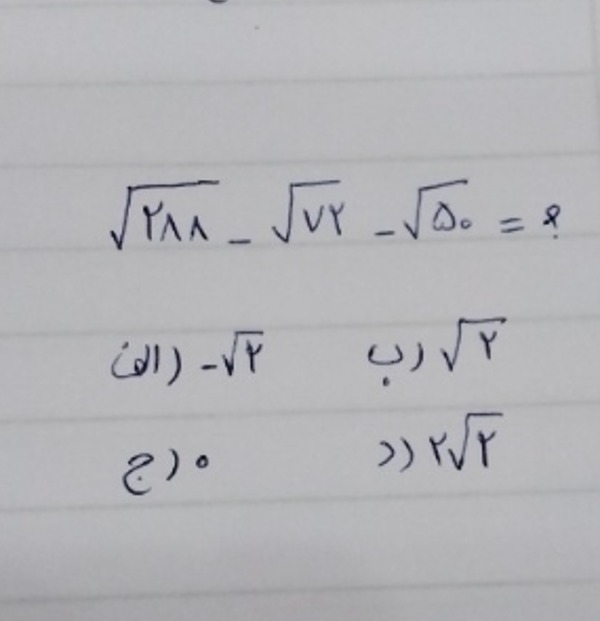 √۲۸۸ - √۷۲ - √۵۰ = ؟
الف) -√۲ ب) √۲
ج) ۰ د) ۲√۲